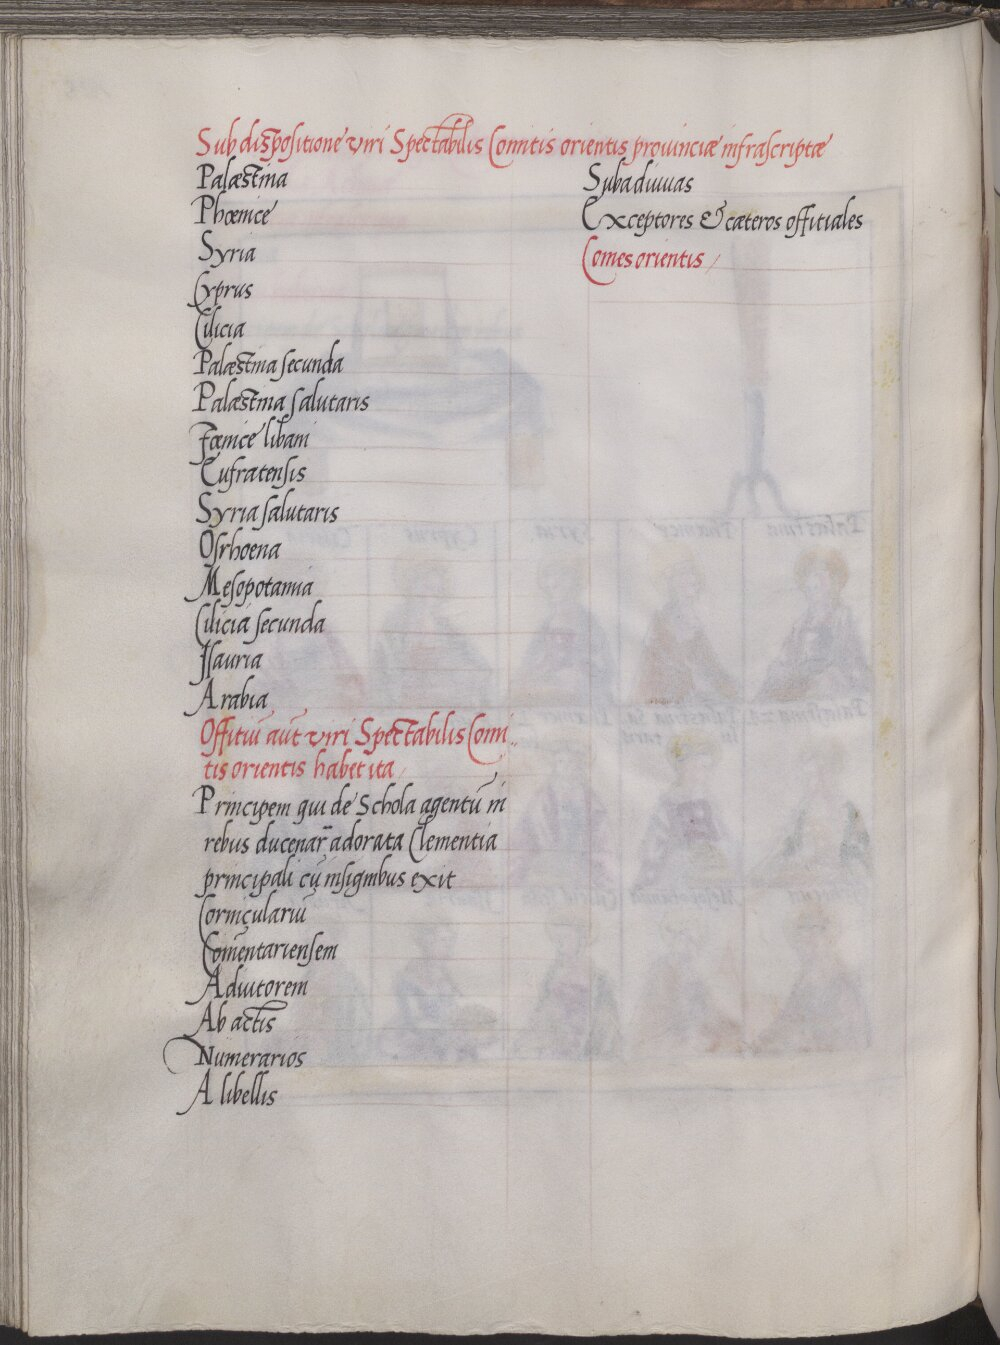 Sub dispositione viri Spectabilis Comitis orientis prouinciæ infrascriptæ
Palæstina
Phœnice
Syria
Cyprus
Cilicia
Palæstina secunda
Palæstina salutaris
Fœnice libani
Eufratensis
Syria salutaris
Osrhoena
Mesopotamia
Cilicia secunda
Isauria
Arabia
Offitiū aūt viri Spectabilis Comi
tis orientis habet ita
Principem qui de Schola agentū in
rebus ducenar̄ adorata Clementia
principali cū insignibus exit
Corniculariū
Com̄entariensem
Adiutorem
Ab actis
Numerarios
A libellis
Subadiuuas
Exceptores & cæteros offitiales
Comes orientis